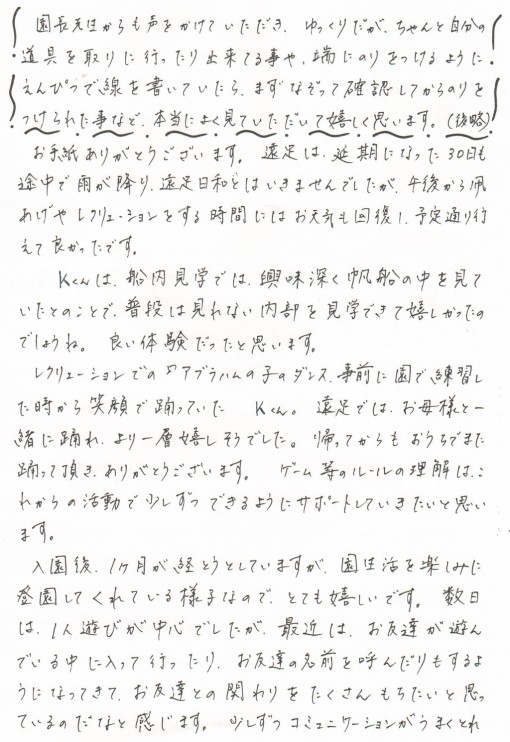 園長先生からも声をかけていただき、ゆっくりだが、ちゃんと自分の
道具を取りに行ったり出来てる事や、端にのりをつけるように
えんぴつで線を書いていたら、まずなぞって確認してからのりを
つけられた事など、本当によく見ていただいて嬉しく思います。(後略)
お手紙ありがとうございます。 遠足は、延期になった30日も
途中で雨が降り、遠足日和とはいきませんでしたが、午後から凧
あげやレクリェーションをする時間にはお天気も回復し、予定通り行
えて良かったです。
Kくんは、船内見学では、興味深く帆船の中を見て
いたとのことで、普段は見れない内部を見学できて嬉しかったの
でしょうね。 良い体験だったと思います。
レクリェーションでの"アブラハムの子のダンス、事前に園で練習し
た時から笑顔で踊っていた Kくん。 遠足では、お母様と一
緒に踊れ、より一層嬉しそうでした。帰ってからもおうちでまた
踊って頂き、ありがとうございます。 ゲーム等のルールの理解は、こ
れからの活動で少しずつできるようにサポートしていきたいと思い
ます。
入園後、1ヶ月が経とうとしていますが、園生活を楽しみに
登園してくれている様子なので、とても嬉しいです。 数日
は、1人遊びが中心でしたが、最近は、お友達が遊ん
でいる中に入って行ったり、お友達の名前を呼んだりもするよ
うになってきて、お友達との関わりをたくさんもちたいと思っ
ているのだなと感じます。 少しずつコミュニケーションがうまくとれ